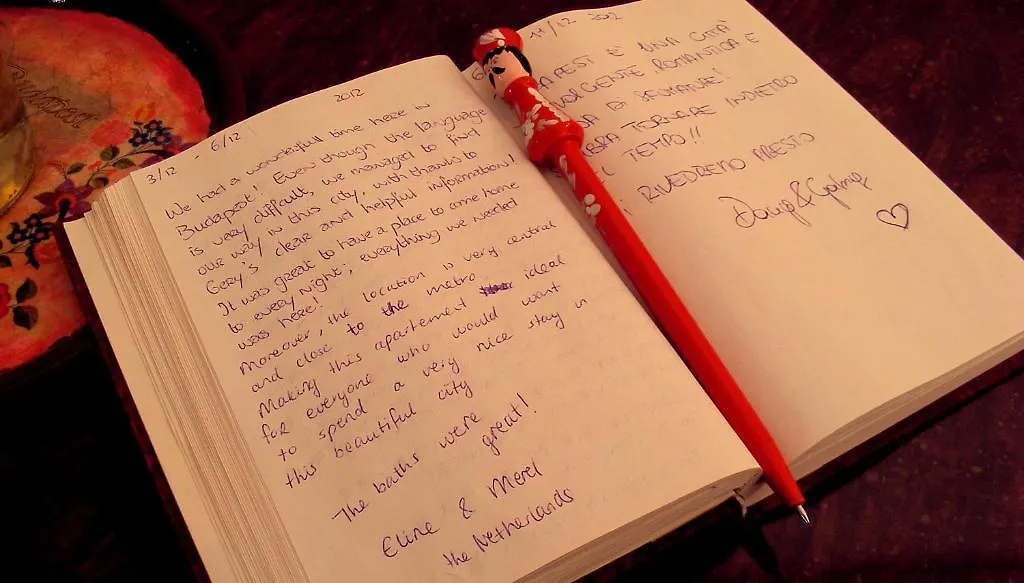 Budapest
3/12 - 6/12 2012
We had a wonderful time here in
Budapest! Even though the language
is very difficult, we managed to find
our way in this city, with thanks to
Gery's clear and helpful information!
It was great to have a place to come home
to every night; everything we needed
was here!
Moreover, the location is very central
and close to the metro
Making this apartement ideal
for everyone who would want
to spend a very nice stay in
this beautiful city
The baths were
great!
Eline & Merel
the Netherlands
11/12 2012
PEST È UNA CITTÀ
VOLGENTE, ROMANTICA E
NA DI SFUMATURE!
BRA TORNARE INDIETRO
TEMPO!!
RIVEDREMO PRESTO